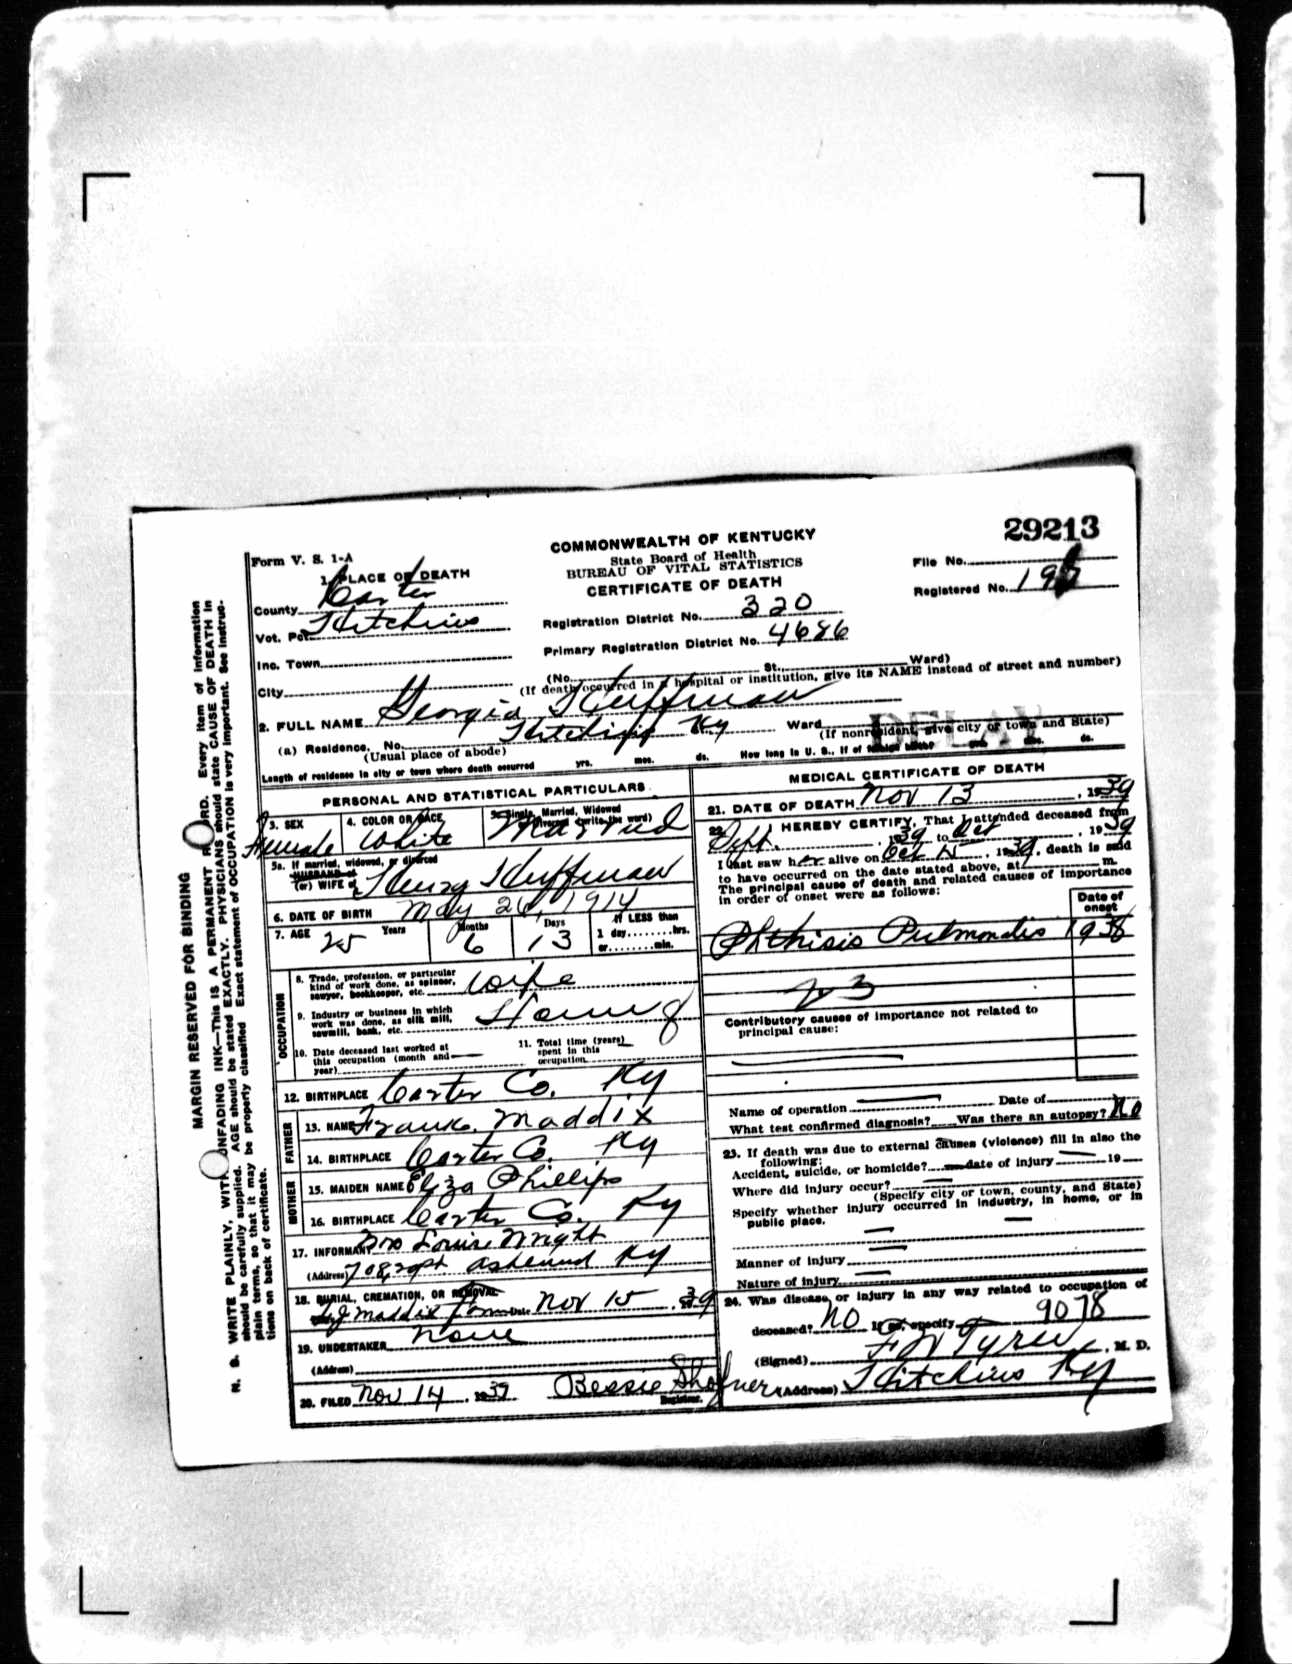 29213
COMMONWEALTH OF KENTUCKY
State Board of Health
BUREAU OF VITAL STATISTICS
CERTIFICATE OF DEATH
Form V. S. 1-A
1. PLACE OF DEATH
County Carter
Vot. Pct. Hitchins
Inc. Town
City
Registration District No. 320
Primary Registration District No. 4686
File No.
Registered No. 19
(No. St., Ward)
(If death occurred in a hospital or institution, give its NAME instead of street and number)
2. FULL NAME Georgia Huffman
(a) Residence, No. Hitchins Ky Ward
(Usual place of abode) (If nonresident, give city or town and State)
DELAY
Length of residence in city or town where death occurred yrs. mos. ds. How long in U. S., if of foreign birth? yrs. mos. ds.
PERSONAL AND STATISTICAL PARTICULARS
3. SEX Female
4. COLOR OR RACE White
5. Single, Married, Widowed or Divorced (write the word) Married
5a. If married, widowed, or divorced
HUSBAND of
(or) WIFE of Henry Huffman
6. DATE OF BIRTH May 26, 1914
7. AGE 25 Years 6 Months 13 Days If LESS than 1 day hrs. or min.
OCCUPATION
8. Trade, profession, or particular kind of work done, as spinner, sawyer, bookkeeper, etc. wife
9. Industry or business in which work was done, as silk mill, sawmill, bank, etc.
10. Date deceased last worked at this occupation (month and year)
11. Total time (years) spent in this occupation
12. BIRTHPLACE Carter Co. Ky
FATHER
13. NAME Frank Maddix
14. BIRTHPLACE Carter Co. Ky
MOTHER
15. MAIDEN NAME Eliza Phillips
16. BIRTHPLACE Carter Co. Ky
17. INFORMANT Mrs Louise Wright
(Address) Ashland Ky
18. BURIAL, CREMATION, OR REMOVAL
Maddix Date Nov 15, 39
19. UNDERTAKER None
(Address)
20. FILED Nov 14, 1939 Bessie Shofner
Registrar.
MEDICAL CERTIFICATE OF DEATH
21. DATE OF DEATH Nov 13, 1939
22. I HEREBY CERTIFY, That I attended deceased from
Sept. 1939 to Oct, 1939
I last saw her alive on Oct, 1939, death is said
to have occurred on the date stated above, at m.
The principal cause of death and related causes of importance
in order of onset were as follows:
Date of onset
Phthisis Pulmonalis 1938
23
Contributory causes of importance not related to
principal cause:
Name of operation Date of
What test confirmed diagnosis? Was there an autopsy? No
23. If death was due to external causes (violence) fill in also the
following:
Accident, suicide, or homicide? date of injury 19
Where did injury occur?
(Specify city or town, county, and State)
Specify whether injury occurred in industry, in home, or in
public place.
Manner of injury
Nature of injury
24. Was disease or injury in any way related to occupation of
deceased? No If so, specify 9078
(Signed) Tyree, M. D.
(Address) Hitchins Ky
MARGIN RESERVED FOR BINDING
N. B. WRITE PLAINLY, WITH UNFADING INK—THIS IS A PERMANENT RECORD. Every item of information
should be carefully supplied. AGE should be stated EXACTLY. PHYSICIANS should state CAUSE OF DEATH in
plain terms, so that it may be properly classified Exact statement of OCCUPATION is very important. See instruc-
tions on back of certificate.